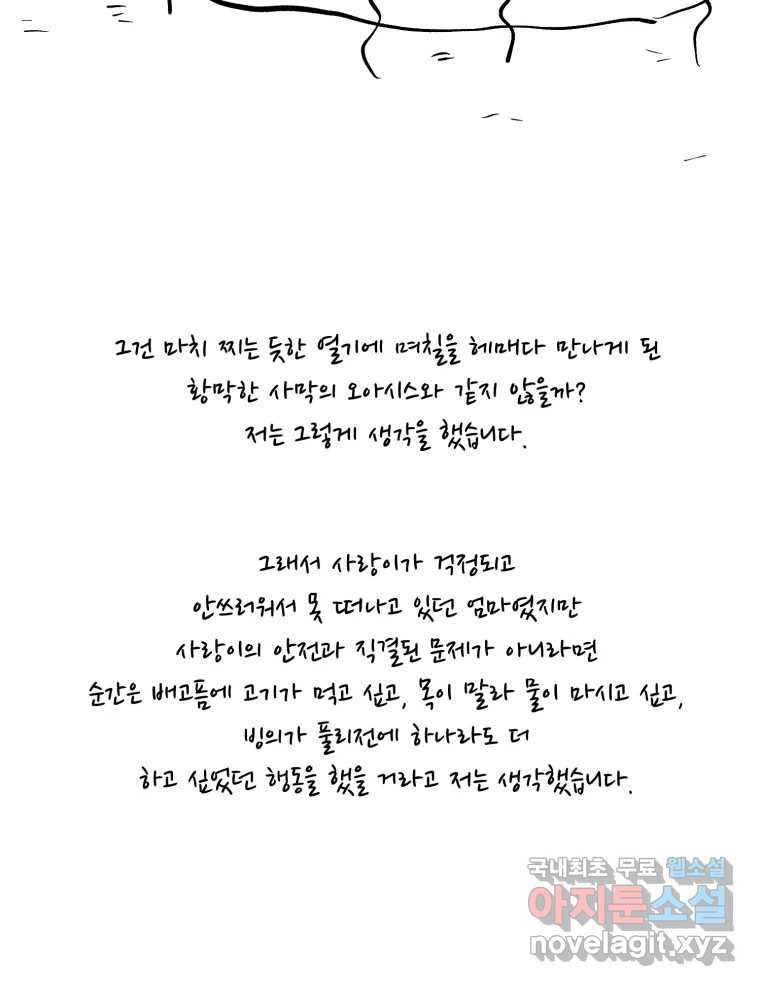 그건 마치 찌는 듯한 열기에 며칠을 헤매다 만나게 된
황막한 사막의 오아시스와 같지 않을까?
저는 그렇게 생각을 했습니다.
그래서 사랑이가 걱정되고
안쓰러워서 못 떠나고 있던 엄마였지만
사랑이의 안전과 직결된 문제가 아니라면
순간은 배고픔에 고기가 먹고 싶고, 목이 말라 물이 마시고 싶고,
빙의가 풀리전에 하나라도 더
하고 싶었던 행동을 했을 거라고 저는 생각했습니다.
국내최초 무료 웹소설
아지툰소설
novelagit.xyz